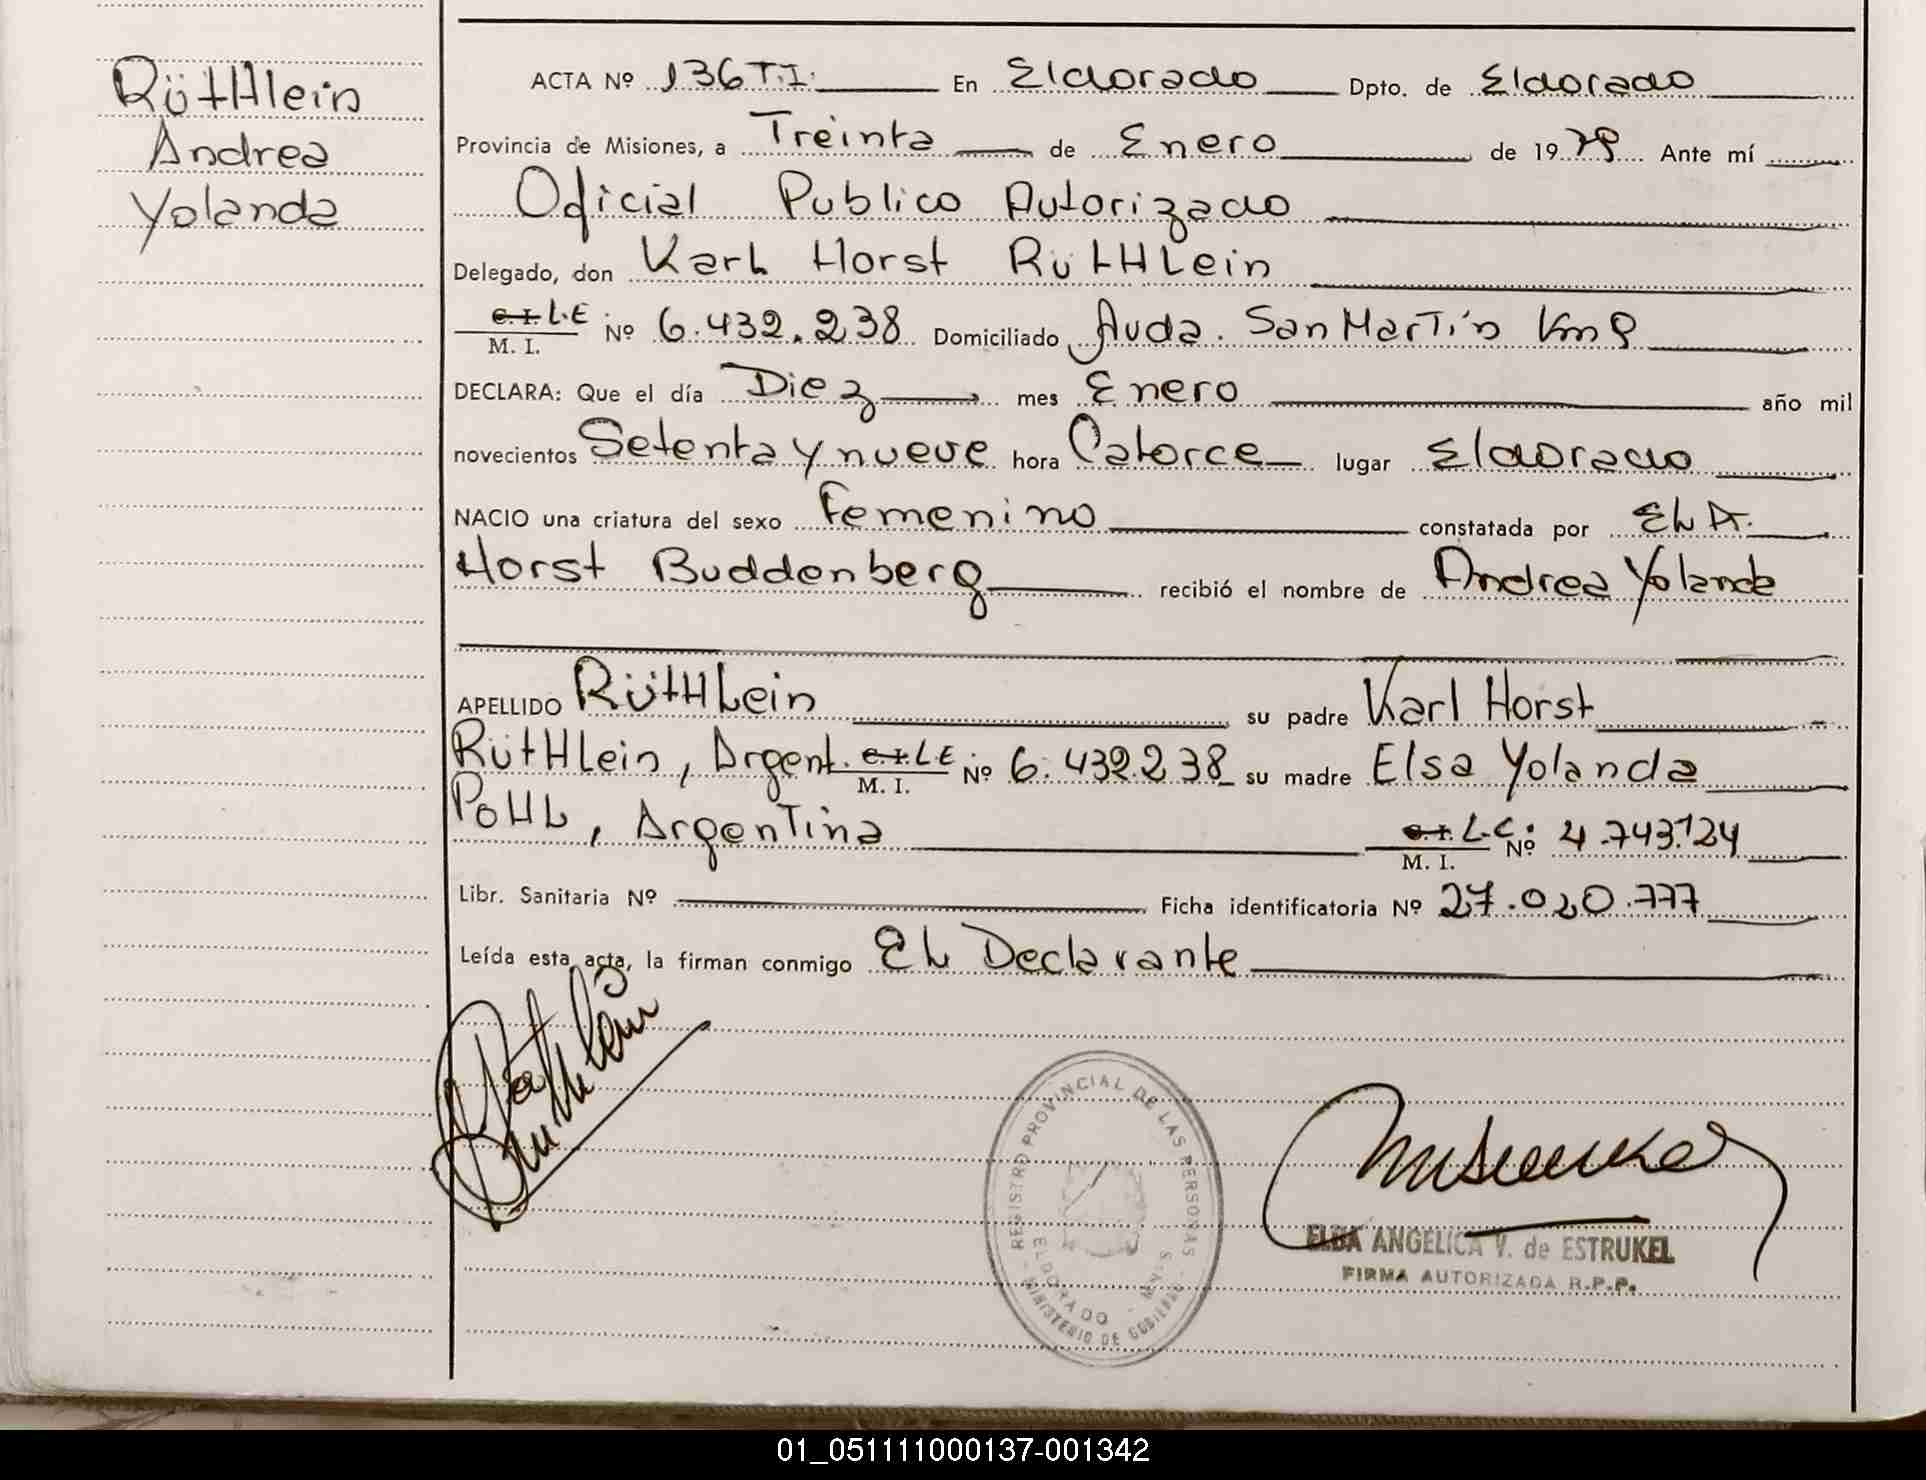 Rüthlein
Andrea
Yolanda
ACTA Nº 136 T.I. En Eldorado Dpto. de Eldorado
Provincia de Misiones, a Treinta de Enero de 1979 Ante mí
Oficial Publico Autorizado
Delegado, don Karl Horst Rüthlein
C. I. L.E M. I. Nº 6.432.238 Domiciliado Avda. San Martín Km 9
DECLARA: Que el día Diez mes Enero año mil
novecientos Setenta y nueve hora Catorce lugar Eldorado
NACIO una criatura del sexo Femenino constatada por EL A.
Horst Buddenberg recibió el nombre de Andrea Yolanda
APELLIDO Rüthlein su padre Karl Horst
Rüthlein, Argent. C.I. L.E M. I. Nº 6.432.238 su madre Elsa Yolanda
Pohl, Argentina C.I. L.C. M. I. Nº 4.743.124
Libr. Sanitaria Nº Ficha identificatoria Nº 27.020.777
Leída esta acta, la firman conmigo El Declarante
REGISTRO PROVINCIAL DE LAS PERSONAS
MINISTERIO DE GOBIERNO
ELDORADO
ELBA ANGELICA V. de ESTRUKEL
FIRMA AUTORIZADA R.P.P.
01_051111000137-001342